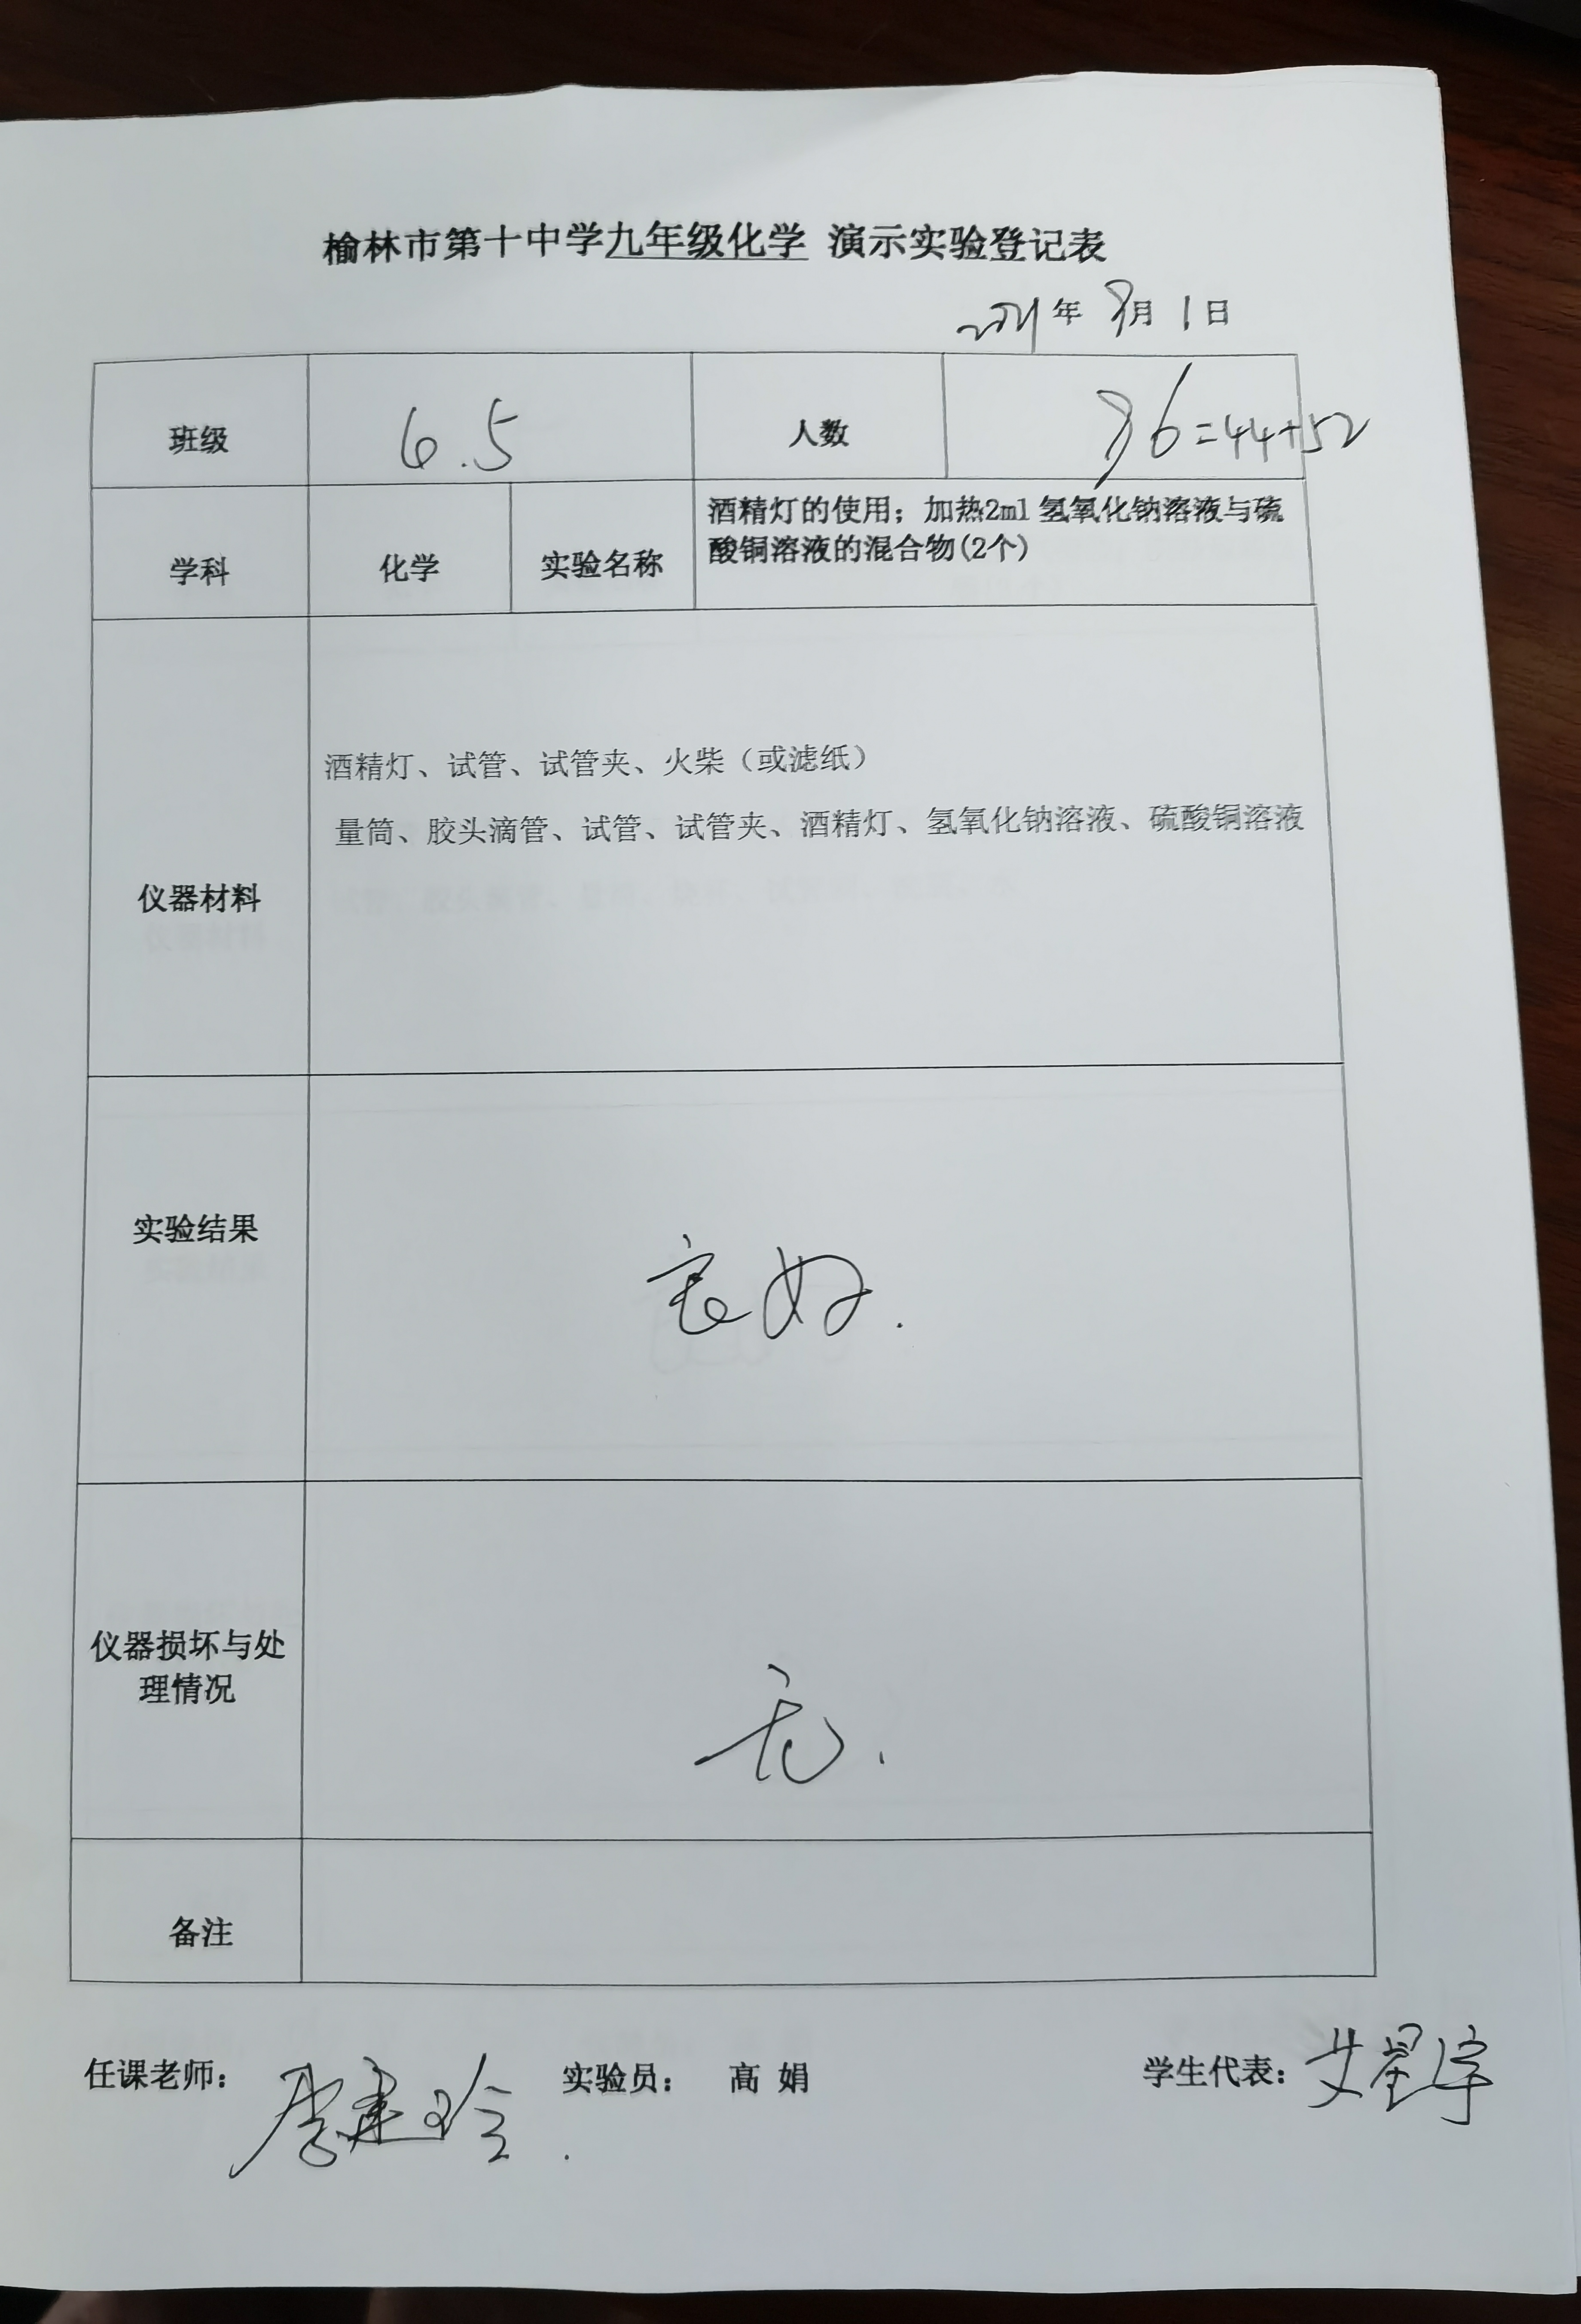 榆林市第十中学九年级化学 演示实验登记表
2021年 9月 1日
班级 6.5 人数 96=44+52
学科 化学 实验名称 酒精灯的使用；加热2ml 氢氧化钠溶液与硫
酸铜溶液的混合物(2个)
仪器材料
酒精灯、试管、试管夹、火柴（或滤纸）
量筒、胶头滴管、试管、试管夹、酒精灯、氢氧化钠溶液、硫酸铜溶液
实验结果
良好.
仪器损坏与处
理情况
无.
备注
任课老师： 李建玲. 实验员： 高 娟 学生代表：艾星宇